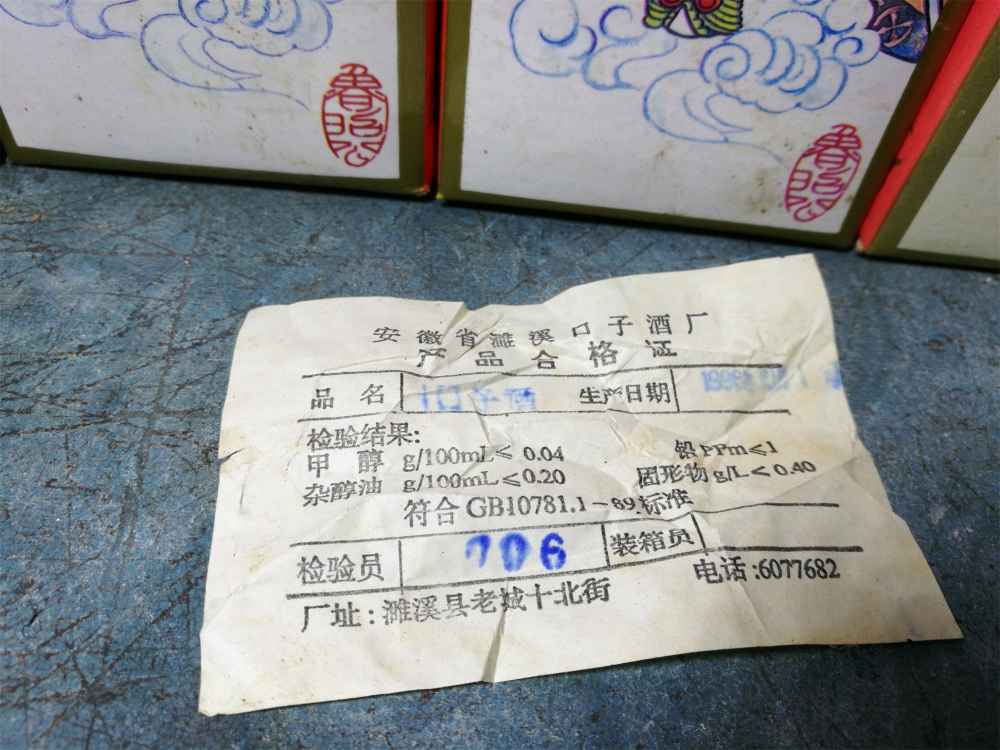 安徽省濉溪口子酒厂
产品合格证
品名 口子酒 生产日期
检验结果:
甲醇 g/100mL≤ 0.04 铅 PPm≤1
杂醇油 g/100mL≤0.20 固形物 g/L≤0.40
符合 GB10781.1-89 标准
检验员 706 装箱员
厂址:濉溪县老城十北街 电话:6077682